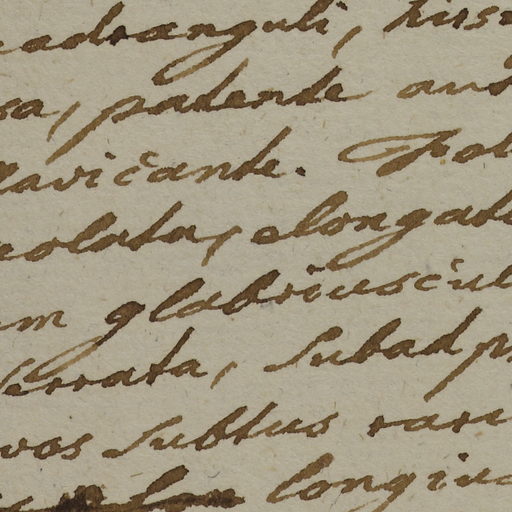 adranguli, hirs
sa, patente aut
lavicante. Fol
eolata, elongat
um glabriuscul
Serrata, Subadp
vos Subtus rari
longius